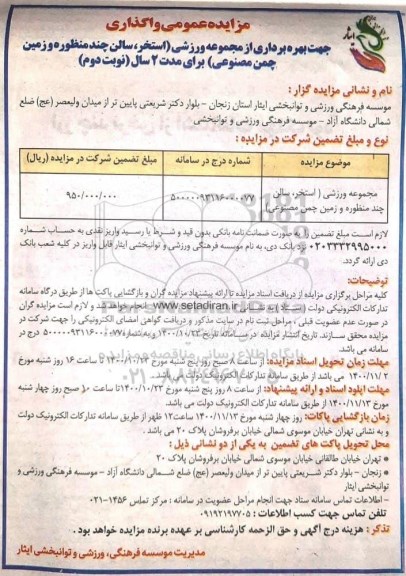 مزایده عمومی واگذاری
جهت بهره برداری از مجموعه ورزشی (استخر، سالن چند منظوره و زمین
چمن مصنوعی) برای مدت ۲ سال (نوبت دوم)
ایثار
نام و نشانی مزایده گزار :
موسسه فرهنگی ورزشی و توانبخشی ایثار استان زنجان - بلوار دکتر شریعتی پایین تر از میدان ولیعصر (عج) ضلع
شمالی دانشگاه آزاد - موسسه فرهنگی ورزشی و توانبخشی
نوع و مبلغ تضمین شرکت در مزایده:
موضوع مزایده
شماره درج در سامانه
مبلغ تضمین شرکت در مزایده (ریال)
مجموعه ورزشی ( استخر، سالن
چند منظوره و زمین چمن مصنوعی)
۵۰۰۰۰۰۹۳۱۱۶۰۰۰۰۷۷
۹۵۰/۰۰۰/۰۰۰
لازم است مبلغ تضمین را به صورت ضمانت نامه بانکی بدون قید و شرط یا رسید واریز نقدی به حساب شماره
۰۲۰۳۳۳۲۹۹۵۰۰۰ نزد بانک دی، به نام موسسه فرهنگی ورزشی و توانبخشی ایثار قابل واریز در کلیه شعب بانک
دی ارائه گردد.
توضیحات:
کلیه مراحل برگزاری مزایده از دریافت اسناد مزایده تا ارائه پیشنهاد مزایده گران و بازگشایی پاکت ها از طریق درگاه سامانه
تدارکات الکترونیکی دولت (ستاد) به آدرس www.setadiran.ir انجام خواهد شد و لازم است مزایده گران
در صورت عدم عضویت قبلی، مراحل ثبت نام در سایت مذکور و دریافت گواهی امضای الکترونیکی را جهت شرکت در
مزایده محقق سازند. تاریخ انتشار مزایده در سامانه تاریخ ۱۴۰۰/۱۰/۲۳ و به شماره ۵۰۰۰۰۰۹۳۱۱۶۰۰۰۰۷۷ درج در
سامانه می باشد.
مهلت زمان تحویل اسناد مزایده: از ساعت ۸ صبح روز پنج شنبه مورخ ۱۴۰۰/۱۰/۲۳ تا ساعت ۱۶ روز شنبه مورخ
۱۴۰۰/۱۱/۲ می باشد از طریق سامانه تدارکات الکترونیک دولت می باشد.
مهلت آپلود اسناد و ارائه پیشنهاد: از ساعت ۸ روز پنج شنبه مورخ ۱۴۰۰/۱۰/۲۳ تا ساعت ۱۰ صبح روز چهار شنبه
مورخ ۱۴۰۰/۱۱/۱۳ از طریق سامانه تدارکات الکترونیک دولت می باشد.
زمان بازگشایی پاکات: روز چهار شنبه مورخ ۱۴۰۰/۱۱/۱۳ ساعت ۱۲ ظهر از طریق سامانه تدارکات الکترونیک دولت
و به نشانی تهران خیابان موسوی شمالی خیابان برفروشان پلاک ۲۰ می باشد.
محل تحویل پاکت های تضمین به یکی از دو نشانی ذیل :
تهران خیابان طالقانی خیابان موسوی شمالی خیابان برفروشان پلاک ۲۰
زنجان - بلوار دکتر شریعتی پایین تر از میدان ولیعصر (عج) ضلع شمالی دانشگاه آزاد - موسسه فرهنگی ورزشی و
توانبخشی ایثار
- اطلاعات تماس سامانه ستاد جهت انجام مراحل عضویت در سامانه : مرکز تماس ۱۴۵۶-۰۲۱
تلفن تماس جهت کسب اطلاعات : ۰۹۱۹۲۱۹۷۷۰۵
تذکر : هزینه درج آگهی و حق الزحمه کارشناسی بر عهده برنده مزایده خواهد بود .
مدیریت موسسه فرهنگی، ورزشی و توانبخشی ایثار